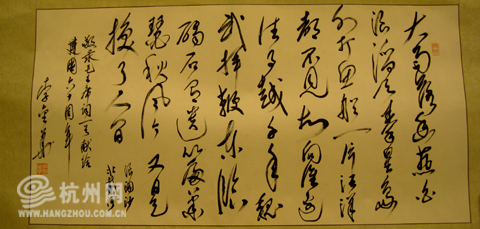 大雨落幽燕白
浪滔天秦皇岛
外打鱼船一片汪洋
都不见知向谁边
往事越千年魏
武挥鞭东临
碣石有遗篇萧
瑟秋风今又是
换了人间
浪淘沙
北戴河
毛主席词一首献给
建国六十周年
杭州网
WWW.HANGZHOU.COM.CN